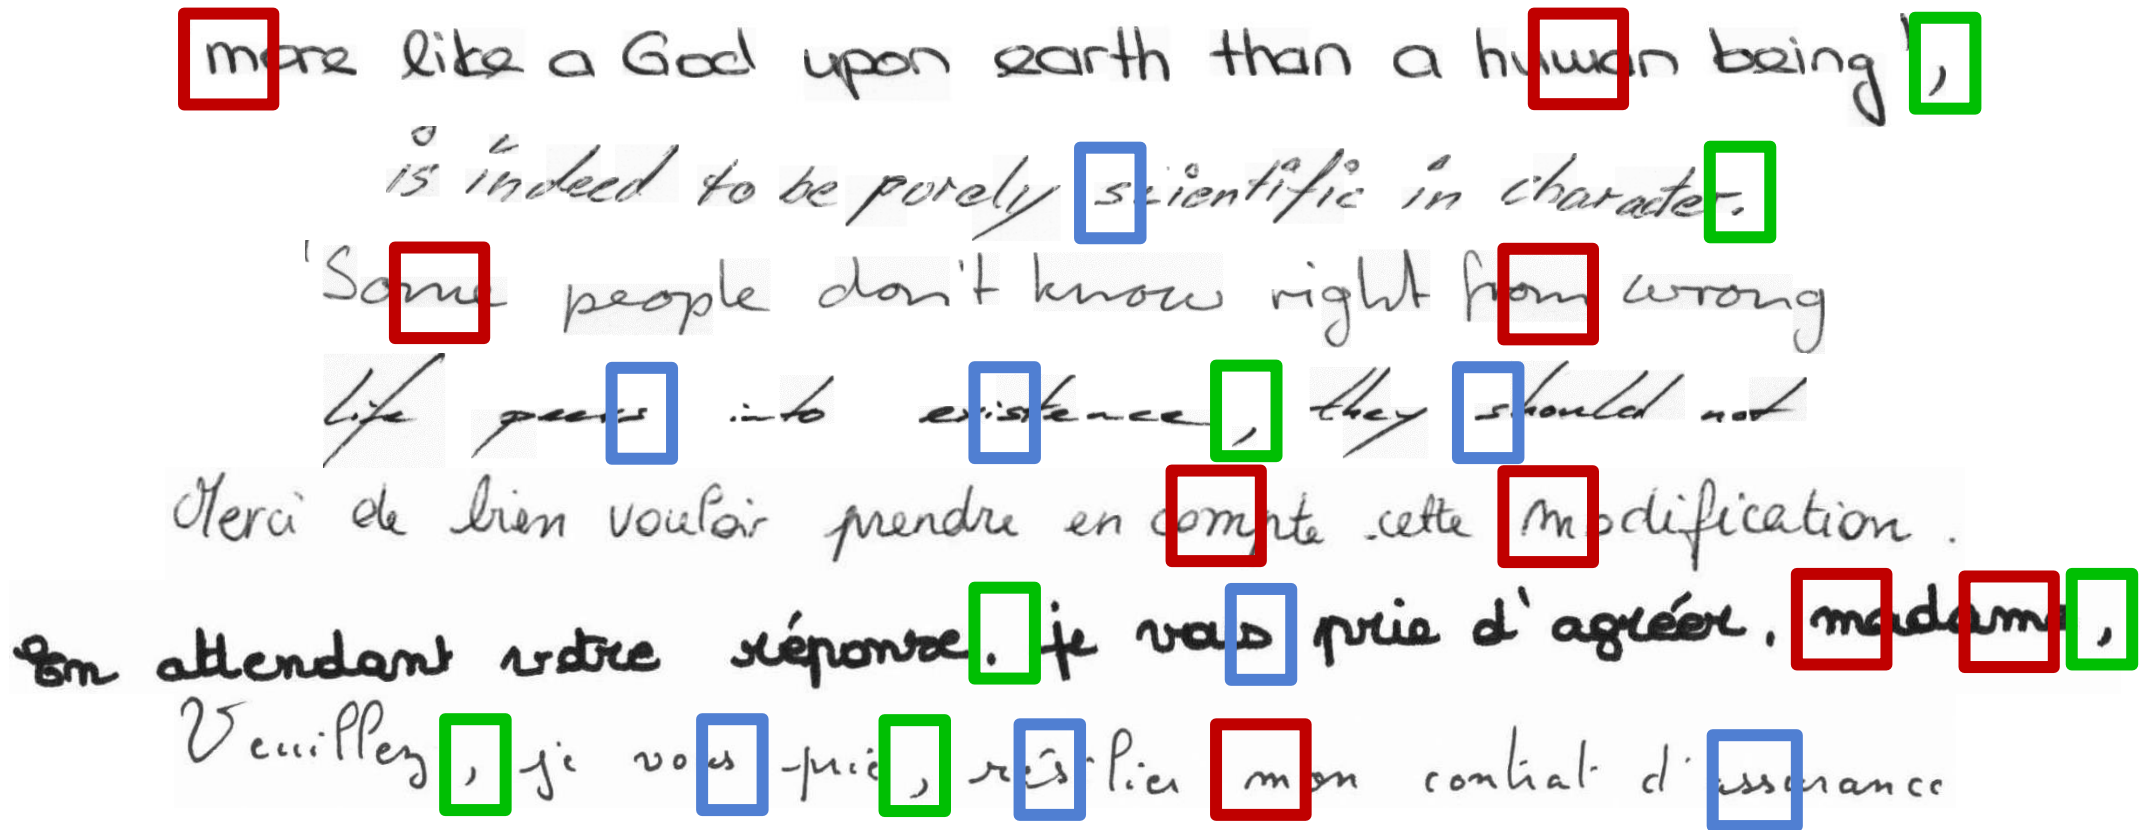 more like a God upon earth than a human being',
is indeed to be purely scientific in character.
'Some people don't know right from wrong
life peers into existence, they should not
Merci de bien vouloir prendre en compte cette modification.
En attendant votre réponse, je vous prie d'agréer, madame,
Veuillez, je vous prie, résilier mon contrat d'assurance